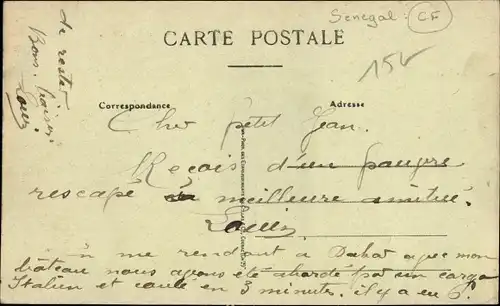 Senegal: CF
CARTE POSTALE
15
Correspondance
Adresse
Cher petit Jean.
Recois d'un pauvre
rescapé meilleure amitié.
Louis
En me rendant a Dakar avec mon
bateau nous avons été abordé par un cargo
Italien et coulé en 3 minutes. il y a eu
de rester
Bons baisers
Louis